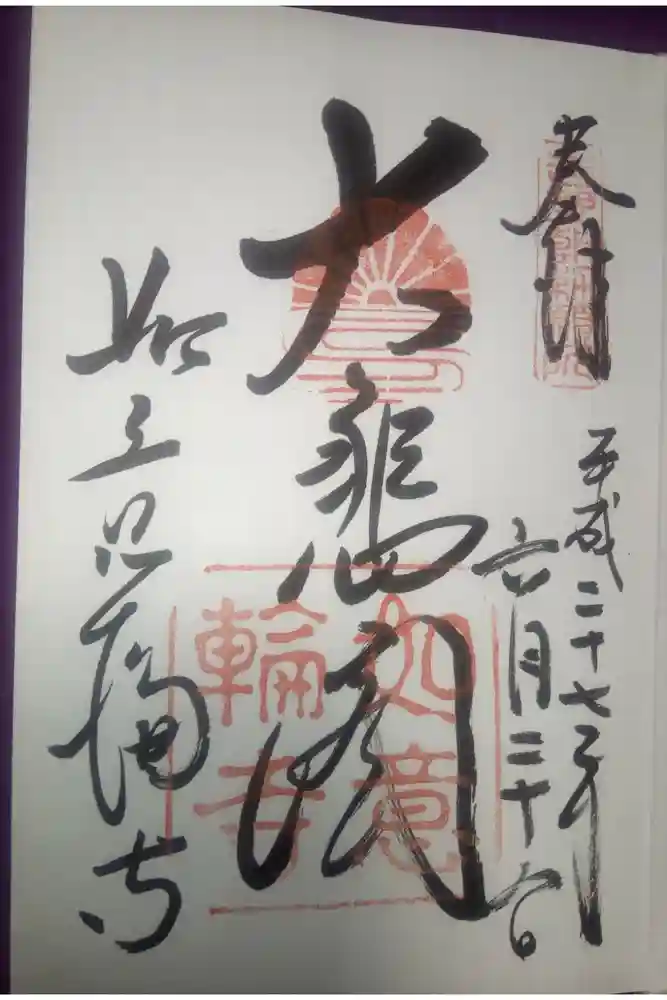 奉拝
平成二十七年
六月二十八日
大悲閣
如意輪寺
如意
輪寺